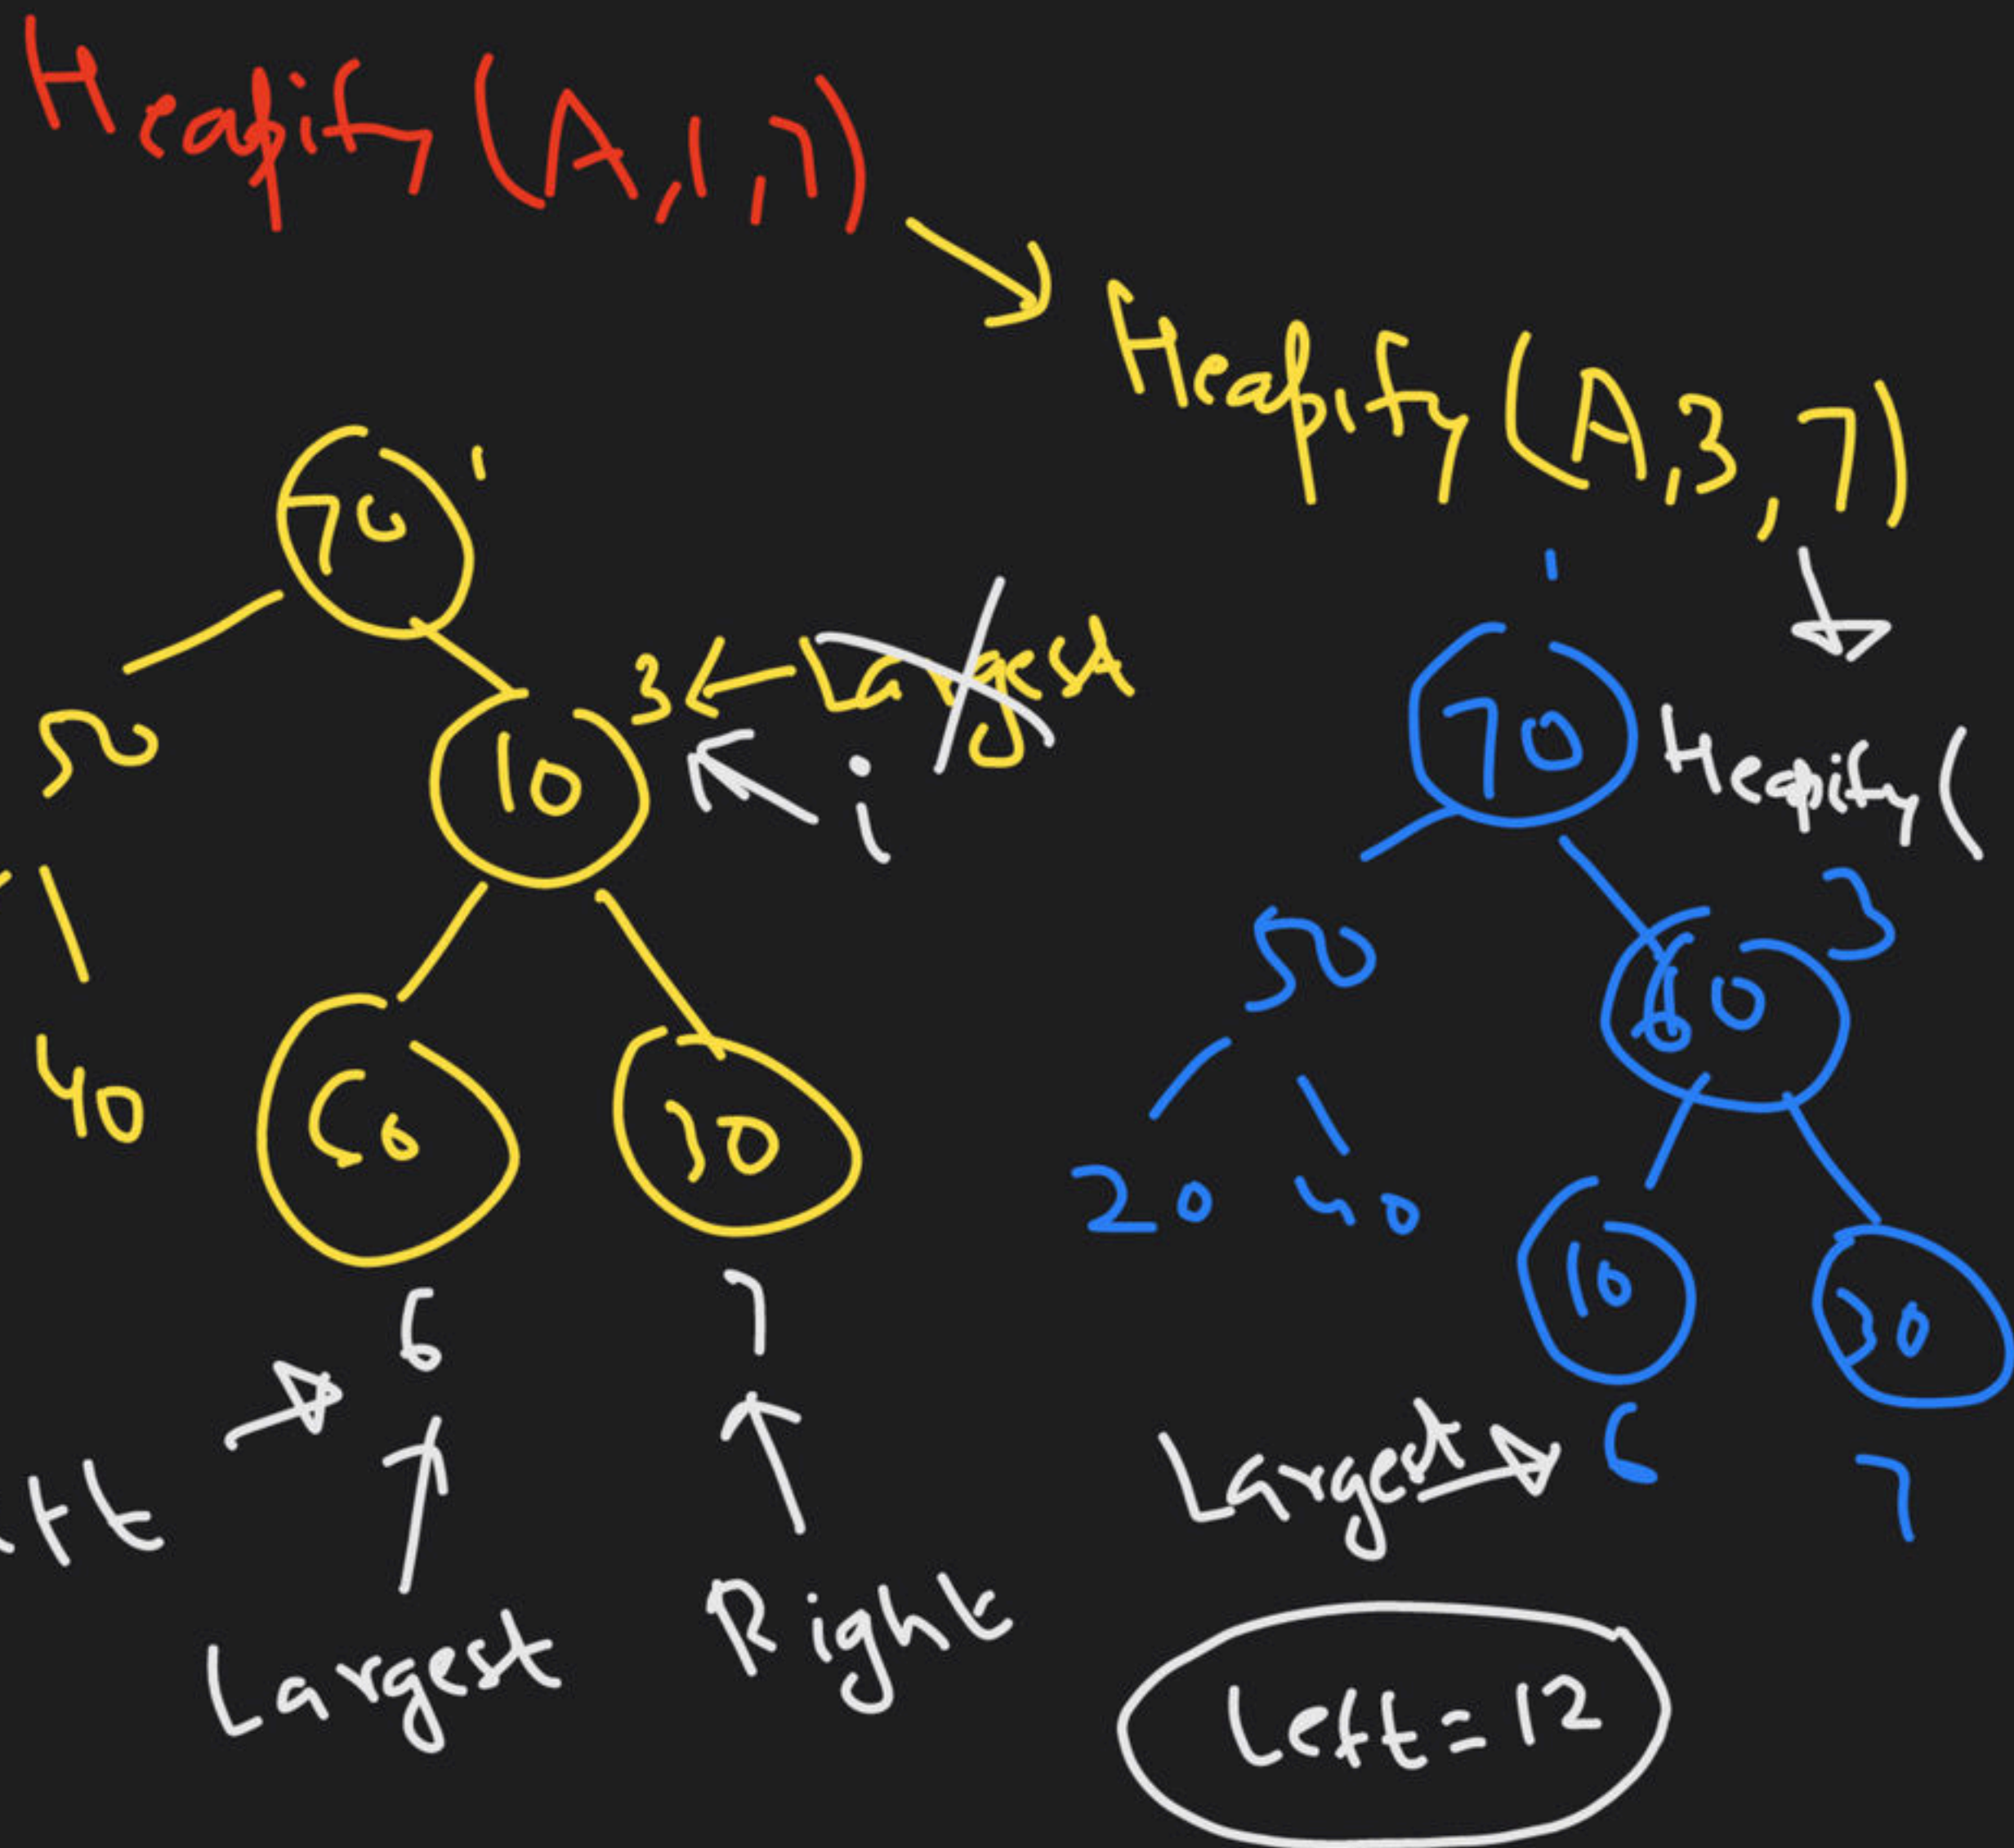 Heapify (A,1,7)
Heapify (A,3,7)
70 1
50
10 3 Largest
i
40
60 30
6 7
Largest
Right
1
70
Heapify (
50
60 3
20 40
10 30
Largest 6 7
Left = 12